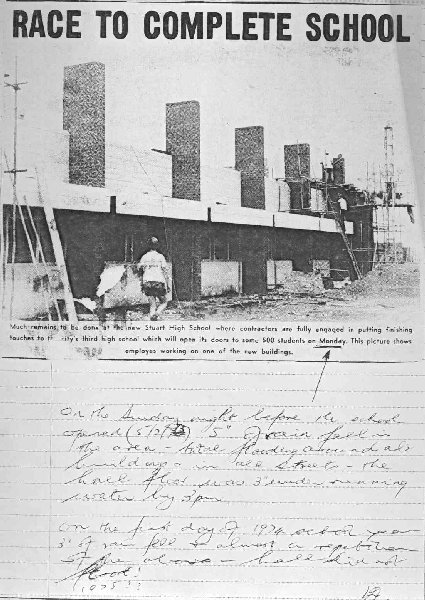 RACE TO COMPLETE SCHOOL
Much remains to be done at the new Stuart High School where contractors are fully engaged in putting finishing
touches to the city's third high school which will open its doors to some 500 students on Monday. This picture shows
employes working on one of the new buildings.
On the Sunday night before the school
opened 5" of rain fell on
the area - total flooding around all
buildings - in all streets - the
hall floor was 3" under running
water by 9pm
On the first day of 1974 school year
3" of rain fell & almost a repetition
of the above - hall did not
flood!